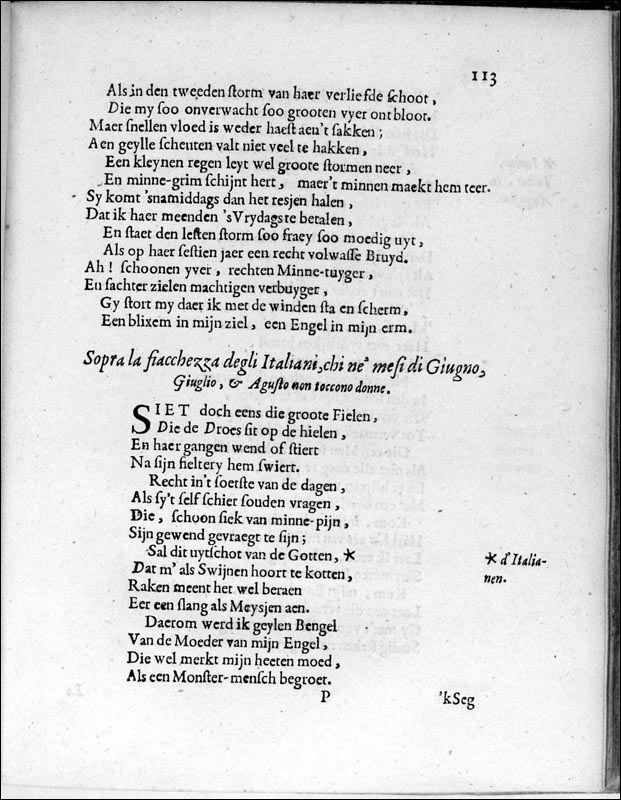 113
Als in den tweeden storm van haer verliefde schoot,
Die my soo onverwacht soo grooten vyer ontbloot.
Maer snellen vloed is weder haest aen't sakken;
Aen geylle scheuten valt niet veel te hakken,
En kleynen regen leyt wel groote stormen neer,
En minne-grim schijnt hert, maer't minnen maekt hem teer.
Sy komt 'snamiddags dan het resjen halen,
Dat ik haer meenden 'sVrydags te betalen,
En staet den lesten storm soo fraey soo moedig uyt,
Als op haer sestien jaer een recht volwasse Bruyd.
Ah! schoonen yver, rechten Minne-tuyger,
En sachter zielen machtigen verbuyger,
Gy stort my daer ik met de winden sta en scherm,
Een blixem in mijn ziel, een Engel in mijn erm.
Sopra la fiacchezza degli Italiani, chi ne' mesi di Giugno,
Giuglio, & Agusto non toccono donne.
SIET doch eens die groote Fielen,
Die de Droes sit op de hielen,
En haer gangen wend of stiert
Na sijn fieltery hem swiert.
Recht in't soetste van de dagen,
Als sy't self schier souden vragen,
Die, schoon siek van minne-pijn,
Sijn gewend gevraegt te sijn;
Sal dit uytschot van de Gotten, *
* d'Italia-
nen.
Dat m' als Swijnen hoort te kotten,
Raken meent het wel beraen
Eer een slang als Meysjen aen.
Daerom werd ik geylen Bengel
Van de Moeder van mijn Engel,
Die wel merkt mijn heeten moed,
Als een Monster-mensch begroet.
P
'kSeg